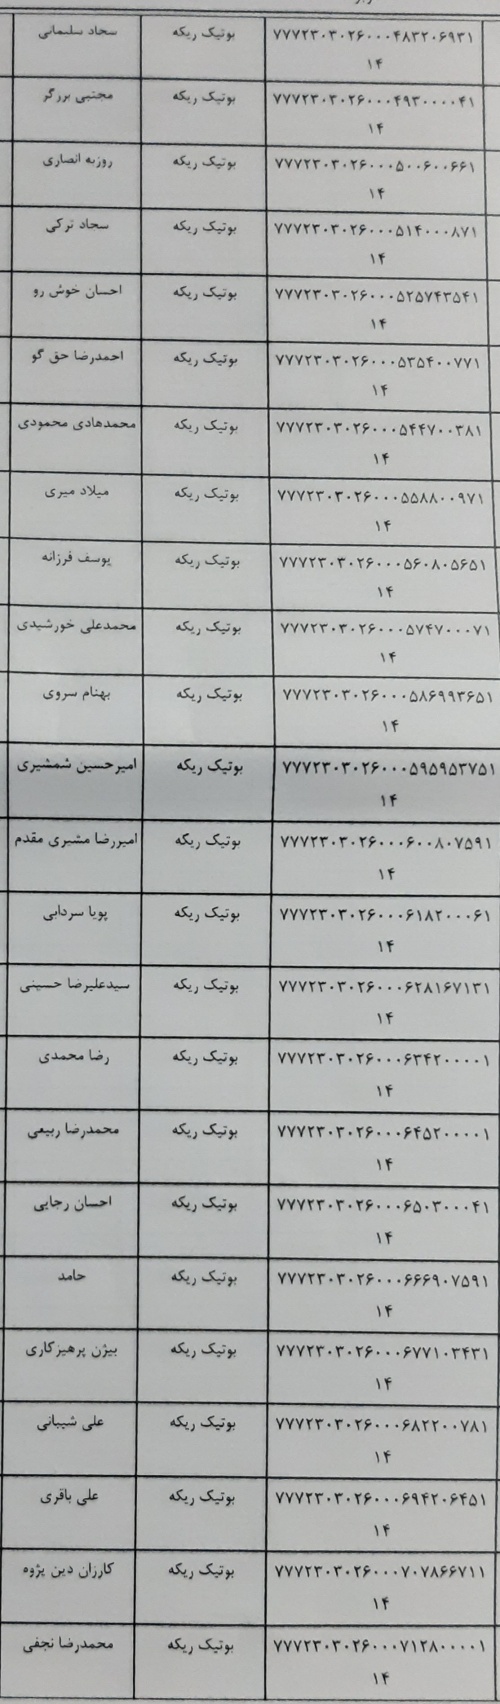 ۷۷۷۲۳۰۳۰۲۶۰۰۰۴۸۳۲۰۶۹۳۱ بوتیک ریکه سجاد سلیمانی
۱۴
۷۷۷۲۳۰۳۰۲۶۰۰۰۴۹۳۰۰۰۰۴۱ بوتیک ریکه مجتبی برزگر
۱۴
۷۷۷۲۳۰۳۰۲۶۰۰۰۵۰۰۶۰۰۶۶۱ بوتیک ریکه روزبه انصاری
۱۴
۷۷۷۲۳۰۳۰۲۶۰۰۰۵۱۴۰۰۰۸۷۱ بوتیک ریکه سجاد ترکی
۱۴
۷۷۷۲۳۰۳۰۲۶۰۰۰۵۲۵۷۴۳۵۴۱ بوتیک ریکه احسان خوش رو
۱۴
۷۷۷۲۳۰۳۰۲۶۰۰۰۵۳۵۴۰۰۷۷۱ بوتیک ریکه احمدرضا حق گو
۱۴
۷۷۷۲۳۰۳۰۲۶۰۰۰۵۴۴۷۰۰۳۸۱ بوتیک ریکه محمدهادی محمودی
۱۴
۷۷۷۲۳۰۳۰۲۶۰۰۰۵۵۸۸۰۰۹۷۱ بوتیک ریکه میلاد میری
۱۴
۷۷۷۲۳۰۳۰۲۶۰۰۰۵۶۰۸۰۵۶۵۱ بوتیک ریکه یوسف فرزانه
۱۴
۷۷۷۲۳۰۳۰۲۶۰۰۰۵۷۴۷۰۰۰۷۱ بوتیک ریکه محمدعلی خورشیدی
۱۴
۷۷۷۲۳۰۳۰۲۶۰۰۰۵۸۶۹۹۳۶۵۱ بوتیک ریکه بهنام سروی
۱۴
۷۷۷۲۳۰۳۰۲۶۰۰۰۵۹۵۹۵۳۷۵۱ بوتیک ریکه امیرحسین شمشیری
۱۴
۷۷۷۲۳۰۳۰۲۶۰۰۰۶۰۰۸۰۷۵۹۱ بوتیک ریکه امیررضا مشیری مقدم
۱۴
۷۷۷۲۳۰۳۰۲۶۰۰۰۶۱۸۲۰۰۰۶۱ بوتیک ریکه پویا سردابی
۱۴
۷۷۷۲۳۰۳۰۲۶۰۰۰۶۲۸۱۶۷۱۳۱ بوتیک ریکه سیدعلیرضا حسینی
۱۴
۷۷۷۲۳۰۳۰۲۶۰۰۰۶۳۴۲۰۰۰۰۱ بوتیک ریکه رضا محمدی
۱۴
۷۷۷۲۳۰۳۰۲۶۰۰۰۶۴۵۲۰۰۰۰۱ بوتیک ریکه محمدرضا ربیعی
۱۴
۷۷۷۲۳۰۳۰۲۶۰۰۰۶۵۰۳۰۰۰۴۱ بوتیک ریکه احسان رجایی
۱۴
۷۷۷۲۳۰۳۰۲۶۰۰۰۶۶۶۹۰۷۵۹۱ بوتیک ریکه حامد
۱۴
۷۷۷۲۳۰۳۰۲۶۰۰۰۶۷۷۱۰۳۴۳۱ بوتیک ریکه بیژن پرهیزکاری
۱۴
۷۷۷۲۳۰۳۰۲۶۰۰۰۶۸۲۲۰۰۷۸۱ بوتیک ریکه علی شیبانی
۱۴
۷۷۷۲۳۰۳۰۲۶۰۰۰۶۹۴۲۰۶۴۵۱ بوتیک ریکه علی باقری
۱۴
۷۷۷۲۳۰۳۰۲۶۰۰۰۷۰۷۸۶۶۷۱۱ بوتیک ریکه کارزان دین پژوه
۱۴
۷۷۷۲۳۰۳۰۲۶۰۰۰۷۱۲۸۰۰۰۰۱ بوتیک ریکه محمدرضا نجفی
۱۴